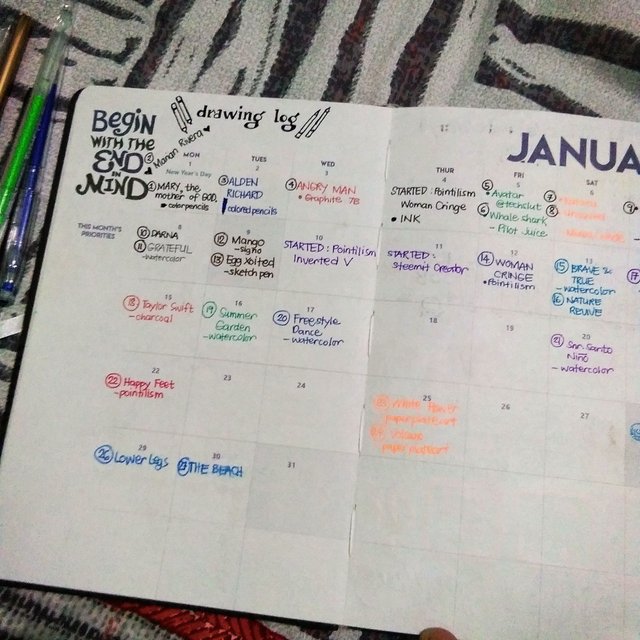 BEGIN
WITH THE
END
IN
MIND
drawing log
JANUA
MON
TUES
WED
THUR
FRI
SAT
THIS MONTH'S
PRIORITIES
1
New Year's Day
② Marian Rivera
① MARY, the
mother of GOD.
• colorpencils
2
③ ALDEN
RICHARD
colored pencils
3
④ ANGRY MAN
• Graphite 7B
4
STARTED: Pointilism
Woman Cringe
• INK
5
⑤ • Avatar
@techslut
⑥ Whale shark
- Pilot Juice
6
⑦
⑧
8
⑩ DARNA
⑪ GRATEFUL
- watercolor
9
⑫ Mango
⑬ Egg xbited
- sketch pen
10
STARTED: Pointilism
Invented V
11
STARTED:
Steemit Creator
12
⑭ WOMAN
CRINGE
• Pointilism
13
⑮ BRAVE &
TRUE
- watercolor
⑯ NATURE
REVIVE
⑰
15
⑱ Taylor Swift
- charcoal
16
⑲ Summer
Garden
- watercolor
17
⑳ Freestyle
Dance
- watercolor
18
19
20
㉑ Snr. Santo
Niño
- watercolor
22
㉒ Happy Feet
- pointilism
23
24
25
White
paper
26
27
29
㉖ Lower Legs
30
㉗ THE BEACH
31